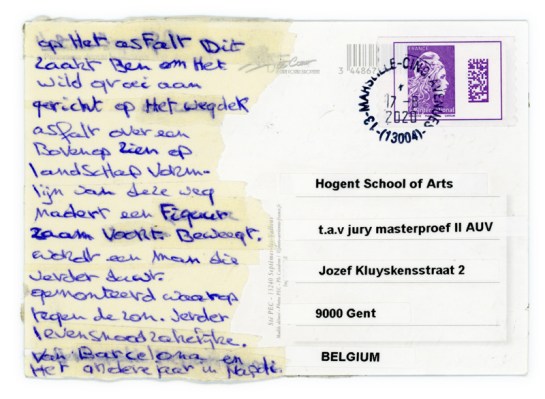 op Het asfalt Dit
zaakt Ben om Het
wild groei aan
gericht op Het wegdek
asfalt over een
Bovenop zien op
landschap Vorm-
lijn van deze weg
nadert een Figuur
zaam Voort Beweegt.
wordt een man die
verder duwt.
gemonteerd waarop
tegen de zon. Verder
levensnoodzakelijke.
van Barcelona en
Het andere jaar in
FRANCE
3 44867
13-MARSEILLE-CINQ AVENUES
17 -
2020
-(13004)-
Hogent School of Arts
t.a.v jury masterproef II AUV
Jozef Kluyskensstraat 2
9000 Gent
BELGIUM